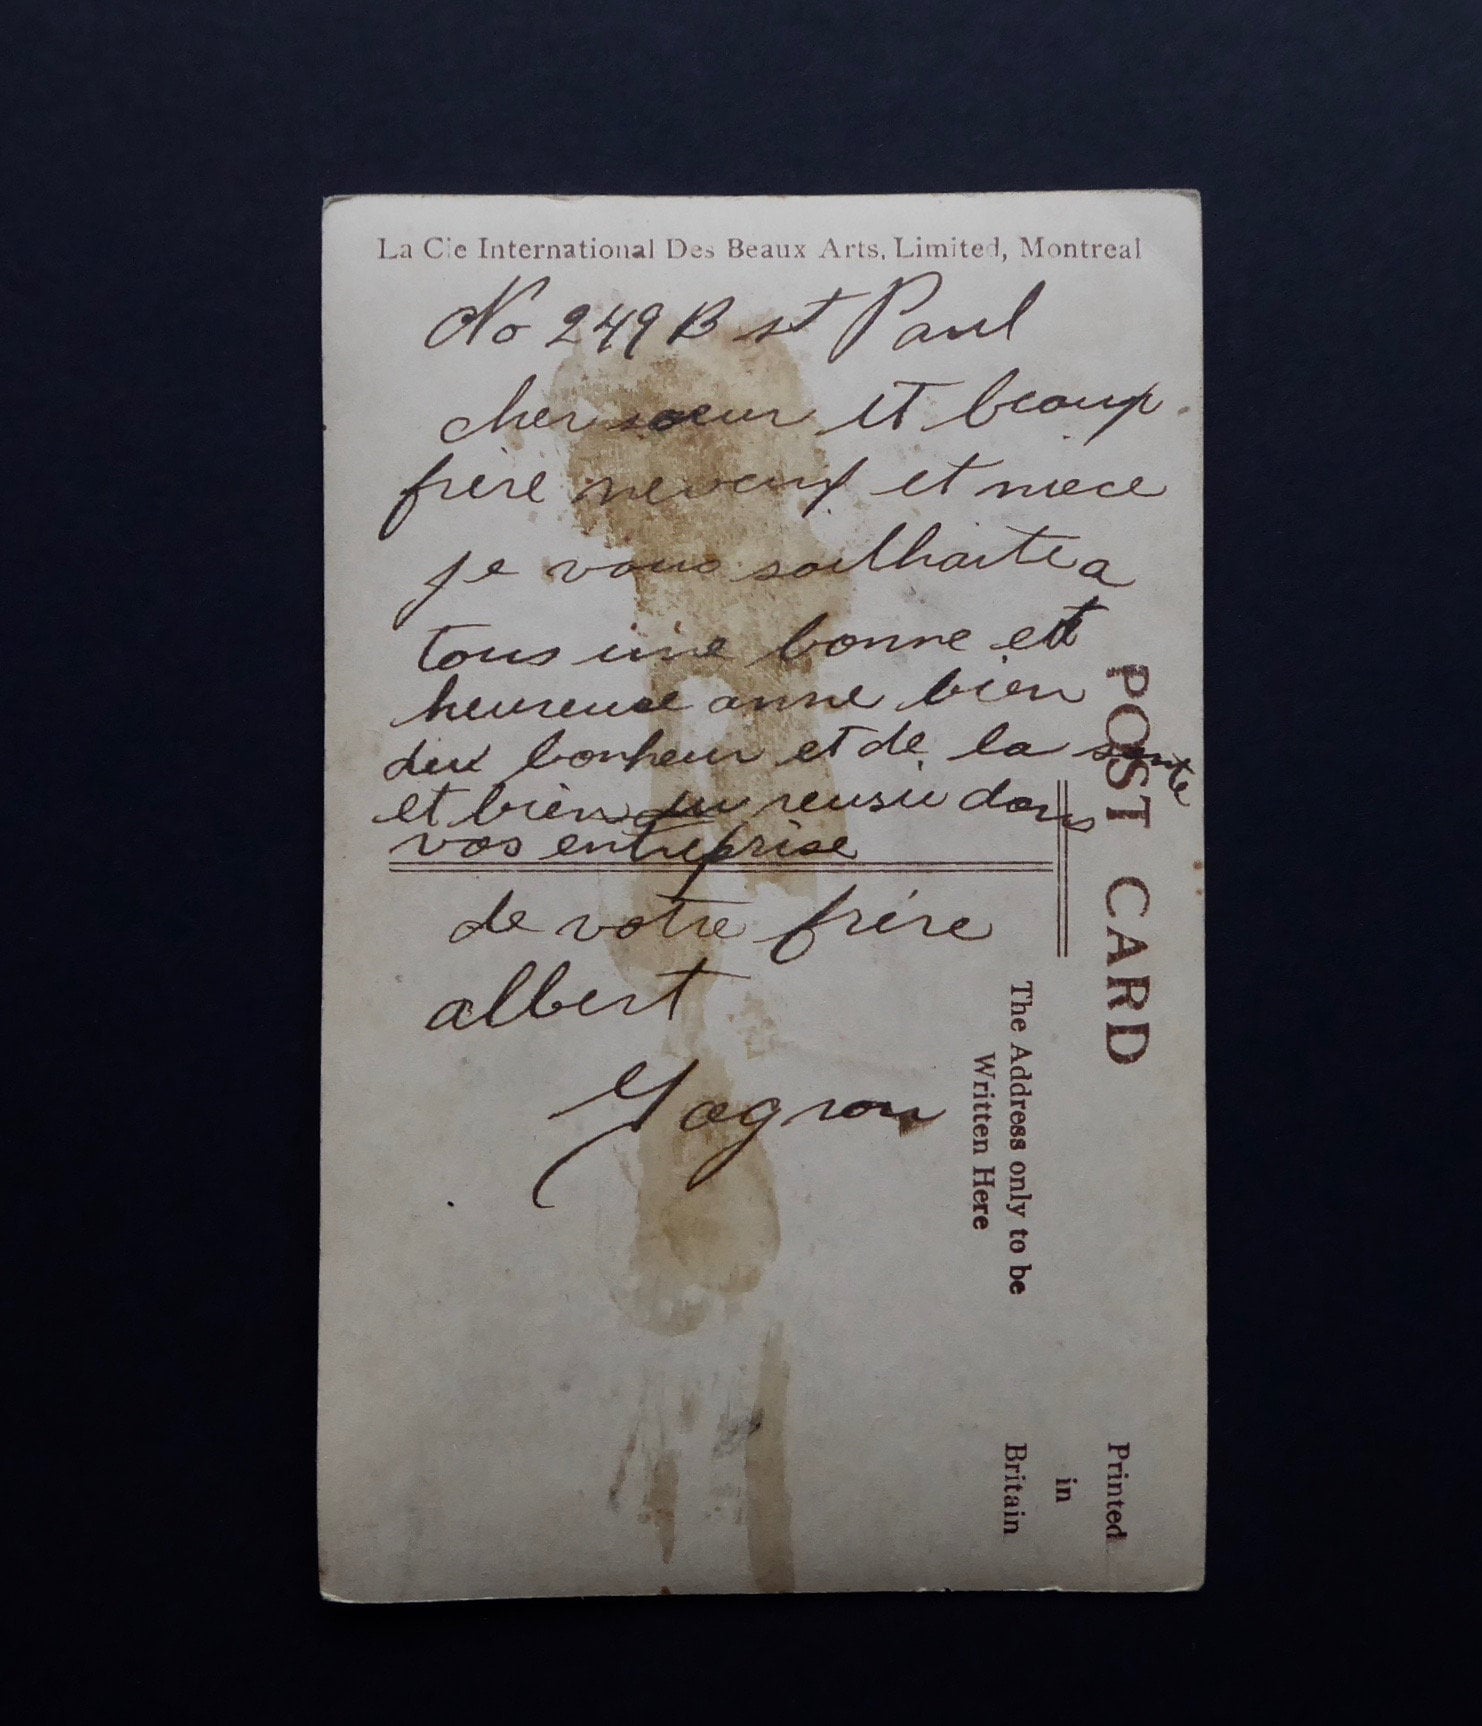 La Cie International Des Beaux Arts, Limited, Montreal
No 249 B st Paul
cher soeur et beaup
frère neveuf et niece
je vous soilhaite a
tous une bonne ett
heureuse anne bien
du bonheur et de la sante
et bien reusie dans
vos entreprise
de votre frère
albert
Gagnon
POST CARD
The Address only to be
Written Here
Printed
in
Britain